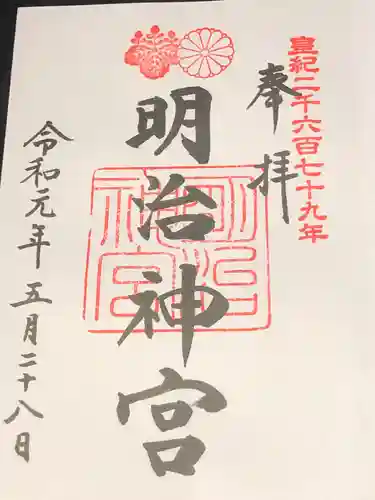 皇紀二千六百七十九年
奉拝
明治神宮
明治神宮
令和元年五月二十八日